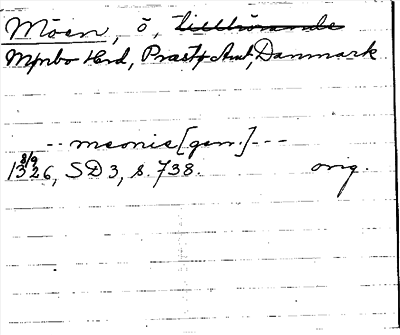 Möen, ö, Tillhörande
Mönbo Hrd, Præstø Amt, Danmark
-- meonie [gen.] ---
8/9
1326, SD 3, s. 738. orig.